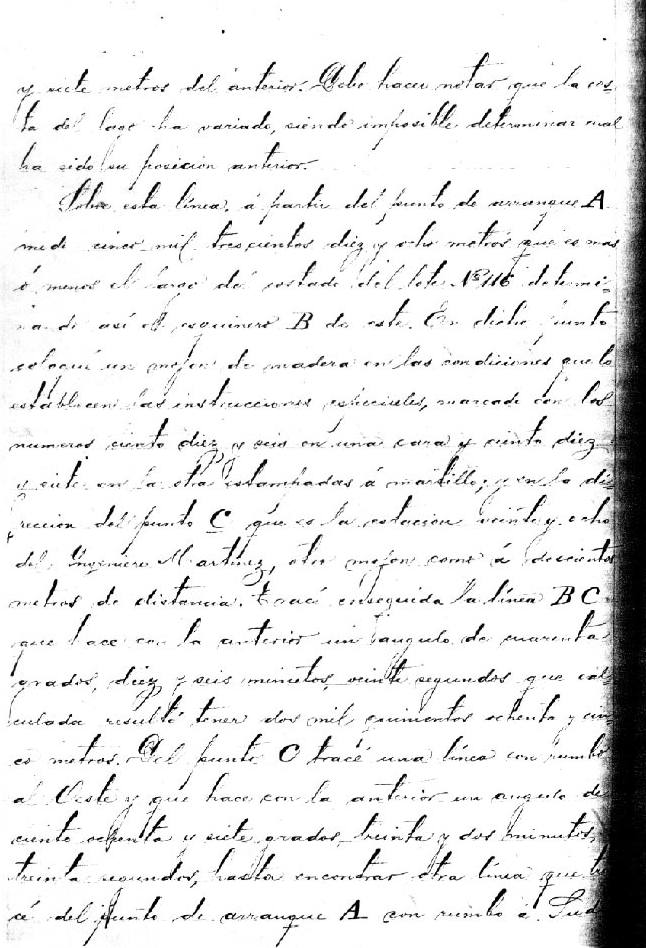 y siete metros del anterior. Debo hacer notar que la cos-
ta del lago ha variado, siendo imposible determinar cual
ha sido su posición anterior.
Sobre esta línea, á partir del punto de arranque A
medí cinco mil trescientos diez y ocho metros que es mas
ó menos el largo del costado del lote Nº 116 determi-
nando así el esquinero B de este. En dicho punto
coloqué un mojon de madera en las condiciones que lo
establecen las instrucciones especiales, marcado con los
numeros ciento diez y seis en una cara y ciento diez
y siete en la otra estampadas á martillo; y en la di-
reccion del punto C que es la estacion veinte y ocho
del Ingeniero Martinez, otro mojon como á doscientos
metros de distancia. Tracé enseguida la línea B C
que hace con la anterior un angulo de cuarenta
grados, diez y seis minutos, veinte segundos que cal-
culada resultó tener dos mil quinientos ochenta y cin-
co metros. Del punto C tracé una línea con rumbo
al Oeste y que hace con la anterior un angulo de
ciento ochenta y siete grados, treinta y dos minutos,
treinta segundos, hasta encontrar otra línea que tra-
cé del punto de arranque A con rumbo á Sud